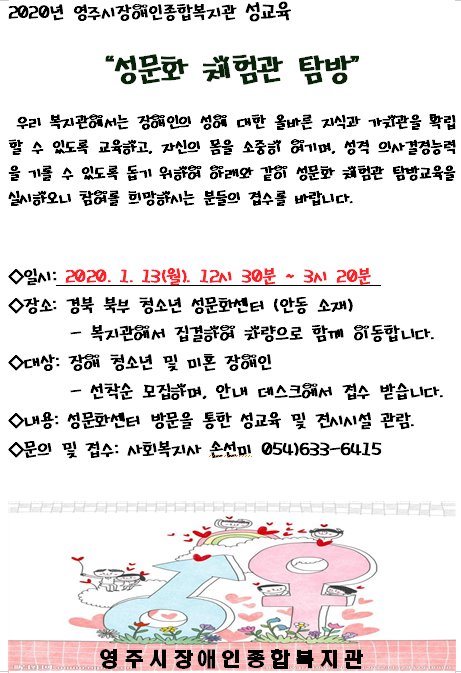 2020년 영주시장애인종합복지관 성교육
"성문화 체험관 탐방"
우리 복지관에서는 장애인의 성에 대한 올바른 지식과 가치관을 확립
할 수 있도록 교육하고, 자신의 몸을 소중히 여기며, 성적 의사결정능력
을 기를 수 있도록 돕기 위하여 아래와 같이 성문화 체험관 탐방교육을
실시하오니 참여를 희망하시는 분들의 접수를 바랍니다.
◇일시: 2020. 1. 13(월). 12시 30분 ~ 3시 20분
◇장소: 경북 북부 청소년 성문화센터 (안동 소재)
- 복지관에서 집결하여 차량으로 함께 이동합니다.
◇대상: 장애 청소년 및 미혼 장애인
- 선착순 모집하며, 안내 데스크에서 접수 받습니다.
◇내용: 성문화센터 방문을 통한 성교육 및 전시시설 관람.
◇문의 및 접수: 사회복지사 손선미 054)633-6415
영주시장애인종합복지관